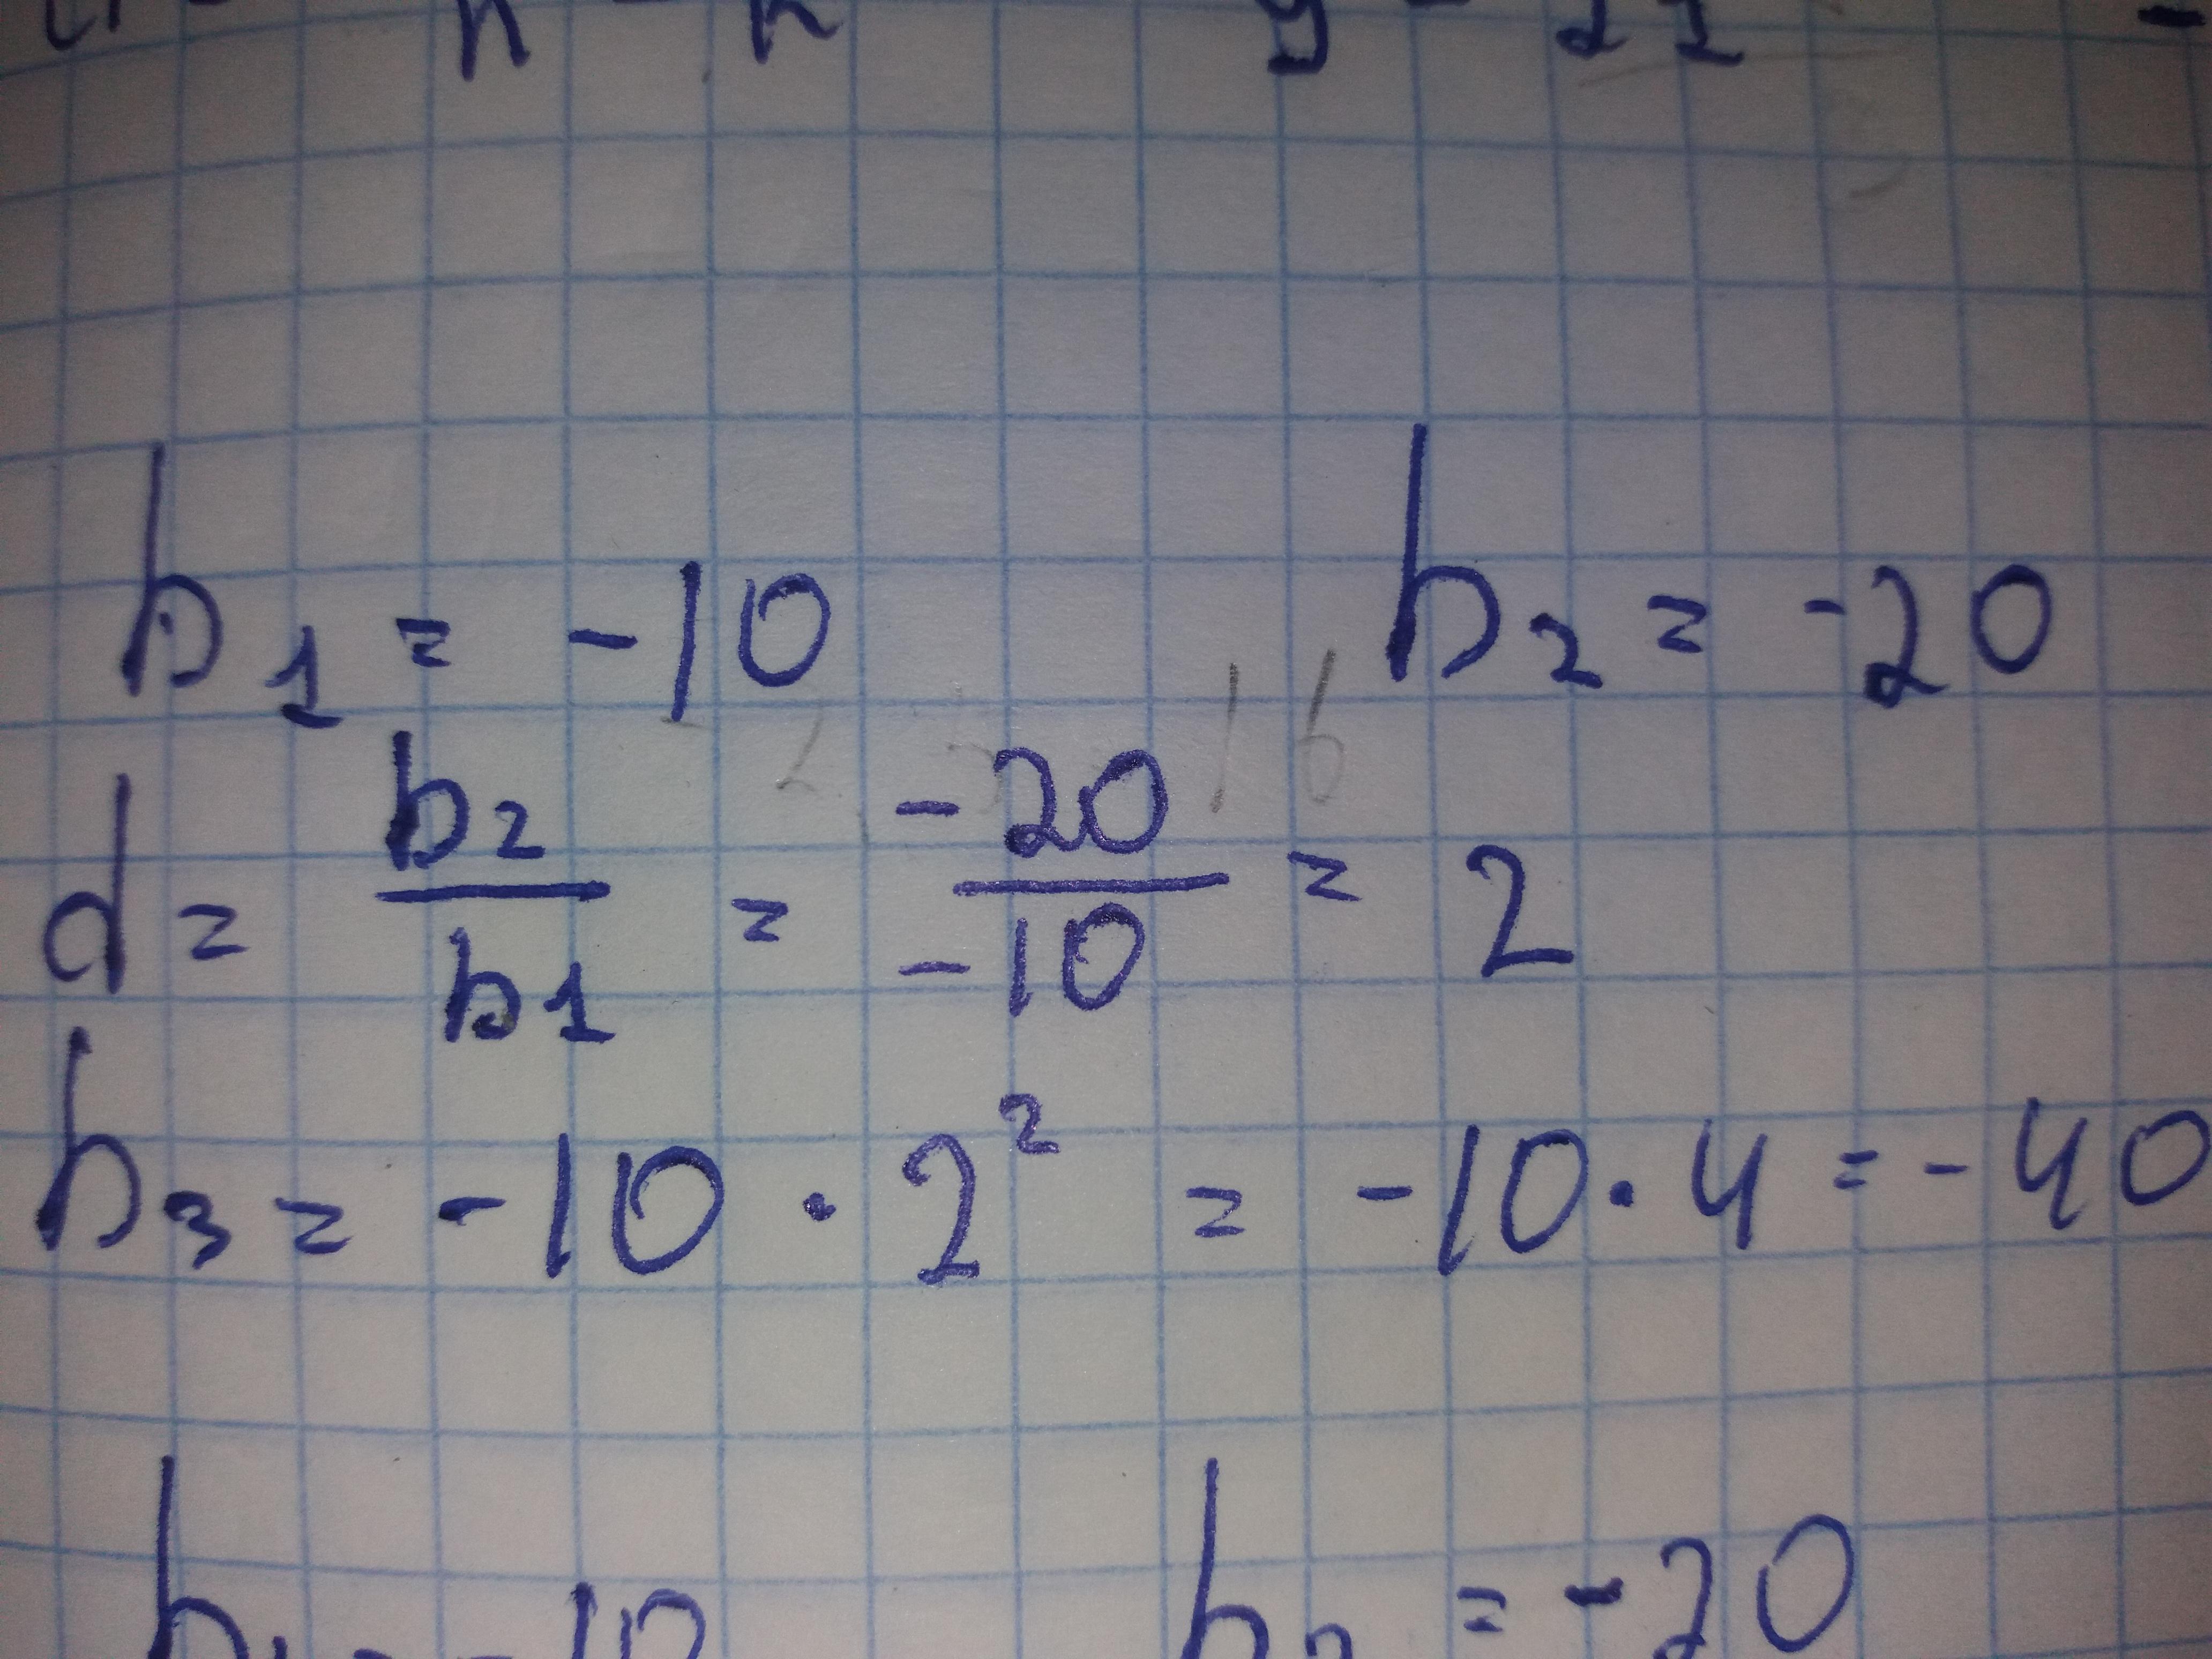 b₁ = -10 b₂ = -20
d = b₂/b₁ = -20/-10 = 2
b₃ = -10 · 2² = -10 · 4 = -40
b₁ = -10 b₂ = -20